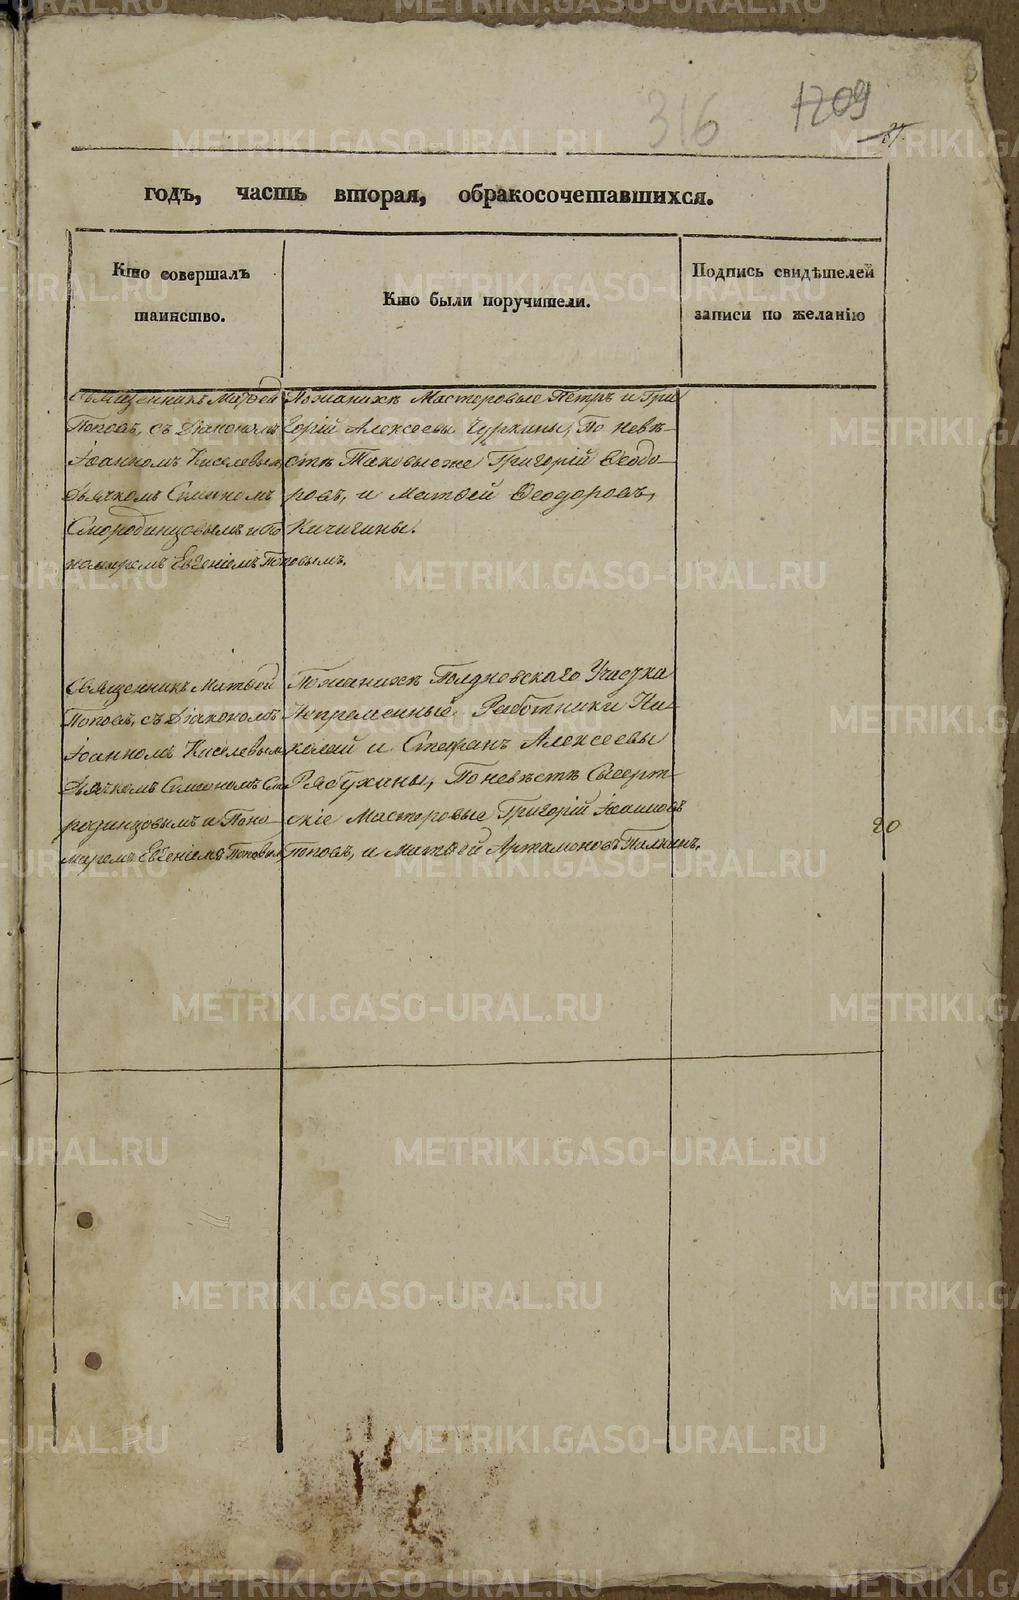 316
1209
годъ, часть вторая, обракосочетавшихся.
Кто совершалъ
таинство.
Кто были поручители.
Подпись свидѣтелей
записи по желанію
Священникъ Матѳей
Поповъ, съ Діакономъ
Іоанномъ Киселевымъ,
Дьячкомъ Симеономъ
Смородинцовымъ и По
номаремъ Евгеніемъ Поповымъ.
По женихѣ Мастеровые Петръ и Гри
горій Алексеевы Чуркины, По невѣ-
стѣ Таковыеже Григорій Ѳеодо-
ровъ, и Матѳей Ѳеодоровъ,
Кичигины.
Священникъ Матѳей
Поповъ, съ Діакономъ
Іоанномъ Киселевым
Дьячкомъ Симеономъ См
родинцовымъ и Поно-
маремъ Евгеніемъ Поповым
По женихѣ Полдновскаго Участка
Непременные Работники Ни-
колай и Стефанъ Алексеевы
Рябухины, По невѣстѣ Сысерт-
скіе Мастеровые Григорій Іоанновъ
Поповъ, и Матѳей Артамоновъ Палкинъ.
20
METRIKI.GASO-URAL.RU